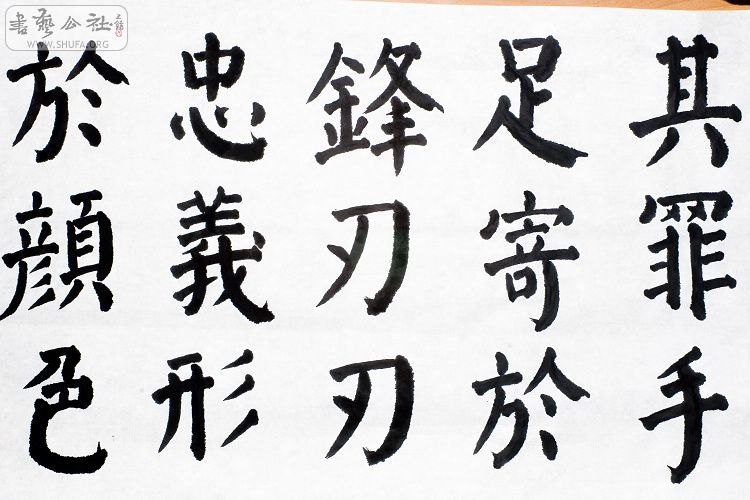 其罪手
足寄於
鋒刃刃
忠義形
於顔色
書藝公社
WWW.SHUFA.ORG